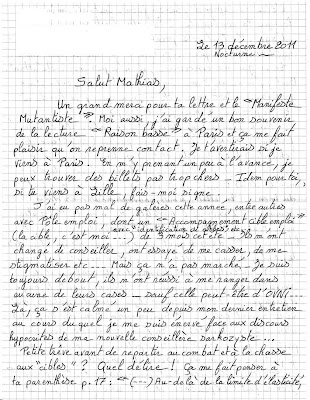 Le 13 décembre 2011
Nocturne
Salut Mathias,
Un grand merci pour ta lettre et le "Manifeste
Mutantiste". Moi aussi, j'ai gardé un bon souvenir
de la lecture "Raison basse" à Paris et ça me fait
plaisir qu'on reprenne contact. Je t'avertirais si je
viens à Paris. En m'y prenant un peu à l'avance, je
peux trouver des billets pas trop chers - Idem pour toi,
si tu viens à Lille, fais-moi signe.
J'ai eu pas mal de galères cette année, entre autres
avec Pôle emploi, dont un "Accompagnement ciblé emploi"
avec "identification de gestes", etc
(la cible, c'est moi...) de 3 mois cet été... Ils m'ont
changé de conseiller, ont essayé de me casser, de me
stigmatiser etc... Mais ça n'a pas marché. Je suis
toujours debout, ils n'ont réussi à me ranger dans
aucune de leurs cases - sauf celle peut-être d'"OVNI"...
Là, ça s'est calmé un peu depuis mon dernier entretien
au cours duquel je me suis énervé face aux discours
hypocrites de ma nouvelle conseillère sarkozyste...
Petite trêve avant de repartir au combat et à la chasse
aux "cibles"? Quel délire! Ça me fait penser à
ta parenthèse p. 17 : "(---) Au-delà de la limite d'élasticité,